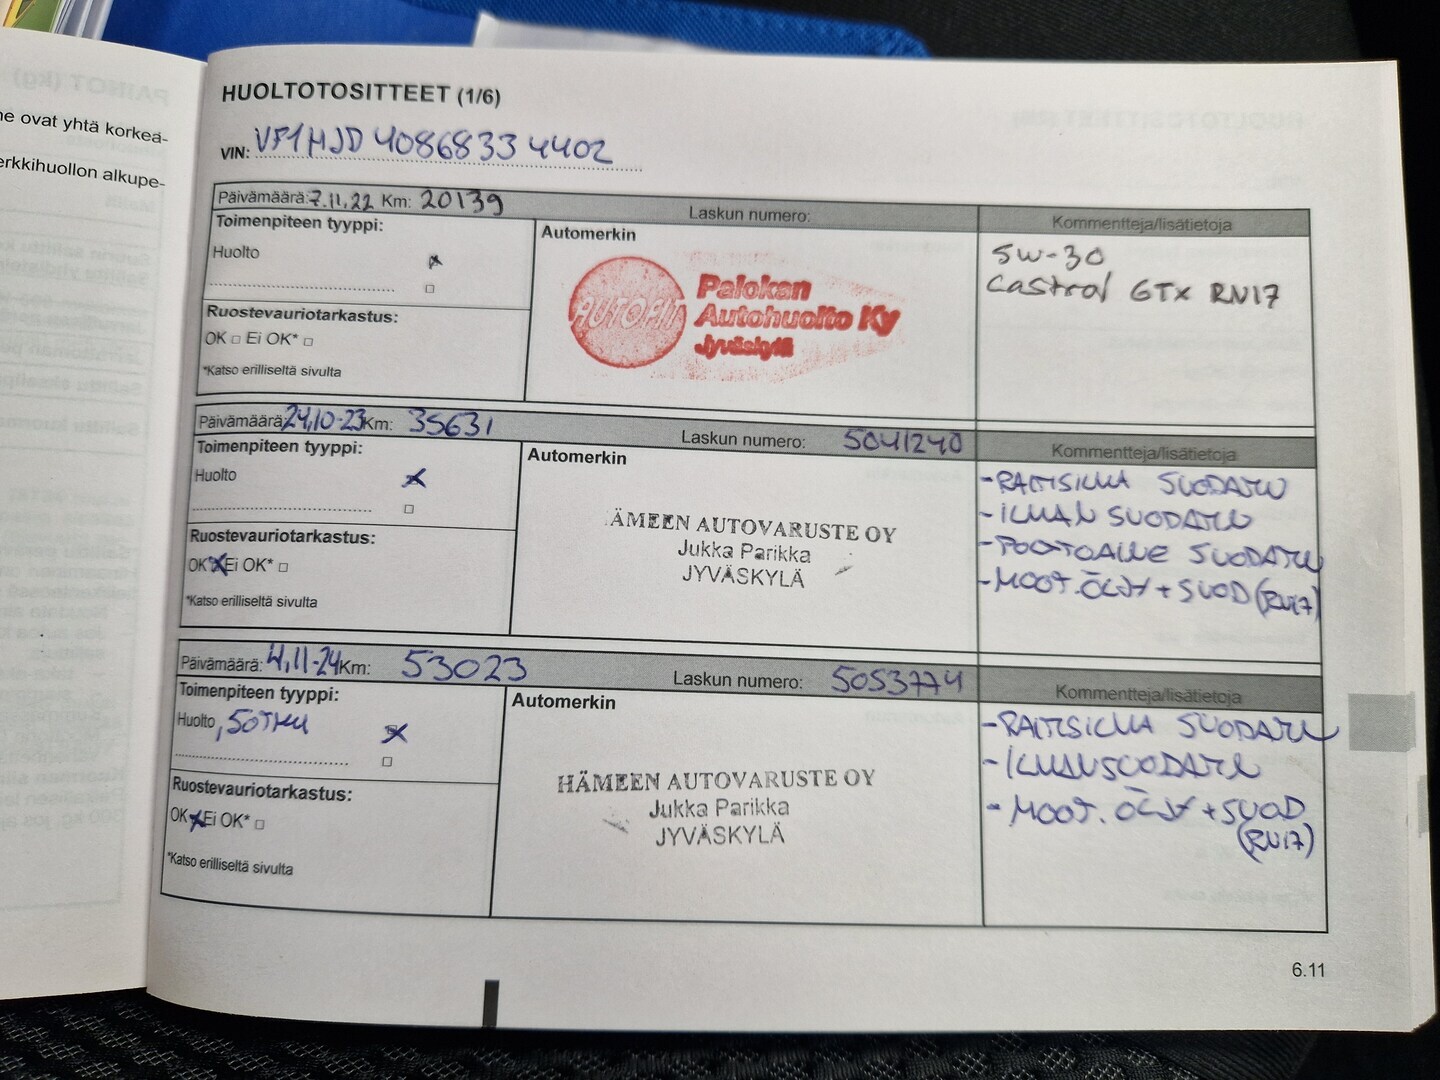 ne ovat yhtä korkea-
erkkihuollon alkupe-
HUOLTOTOSITTEET (1/6)
VIN: VF1HJD40868334402
Päivämäärä: 7.11.22 Km: 20139
Laskun numero:
Kommentteja/lisätietoja
Toimenpiteen tyyppi:
Huolto
Ruostevauriotarkastus:
OK □ Ei OK* □
*Katso erilliseltä sivulta
Automerkin
AUTOFIT
Palokan
Autohuolto Ky
Jyväskylä
5W-30
Castrol GTX RN17
Päivämäärä: 24.10-23 Km: 35631
Laskun numero: 5041240
Kommentteja/lisätietoja
Toimenpiteen tyyppi:
Huolto
Ruostevauriotarkastus:
OK Ei OK* □
*Katso erilliseltä sivulta
Automerkin
ÄMEEN AUTOVARUSTE OY
Jukka Parikka
JYVÄSKYLÄ
- RAITISILMA SUODATIN
- ILMAN SUODATIN
- POLTTOAINE SUODATIN
- MOOT.ÖLJY + SUOD (RN17)
Päivämäärä: 4.11-24 Km: 53023
Laskun numero: 5053774
Kommentteja/lisätietoja
Toimenpiteen tyyppi:
Huolto, 50TKM
Ruostevauriotarkastus:
OK Ei OK* □
*Katso erilliseltä sivulta
Automerkin
HÄMEEN AUTOVARUSTE OY
Jukka Parikka
JYVÄSKYLÄ
- RAITISILMA SUODATIN
- ILMANSUODATIN
- MOOT. ÖLJY + SUOD
(RN17)
6.11